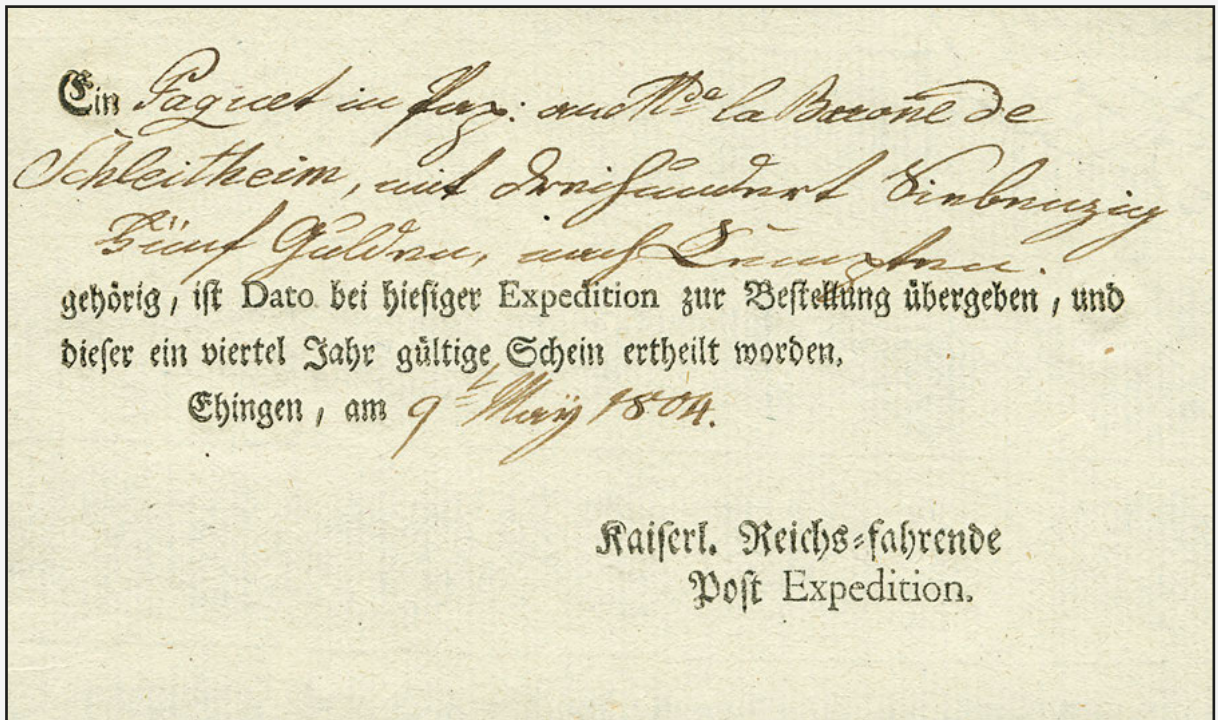 Ein Paquet in an Mde la Barone de
Schleitheim, mit dreihundert Siebenzig
Fünf Gulden, nach
gehörig, ist Dato bei hiesiger Expedition zur Bestellung übergeben, und
dieser ein viertel Jahr gültige Schein ertheilt worden.
Ehingen, am 9t May 1804.
Kaiserl. Reichs-fahrende
Post Expedition.